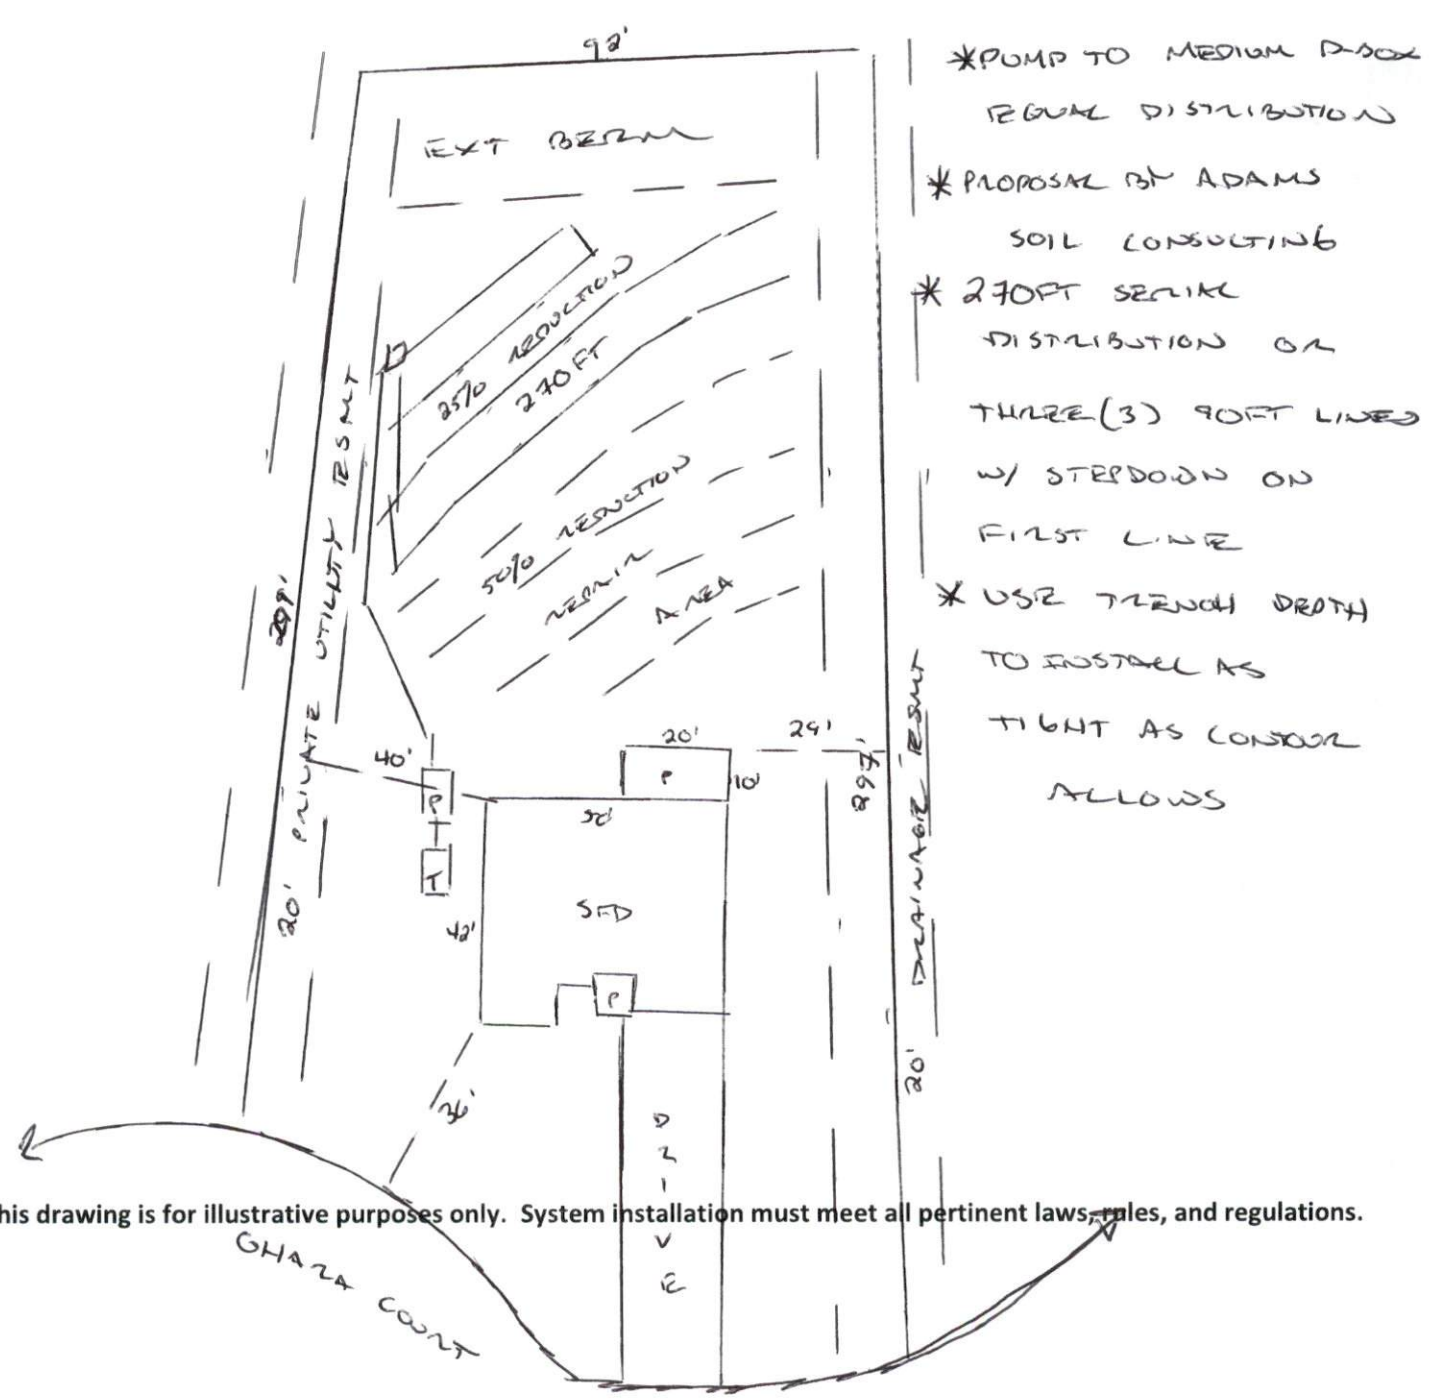 92'
EXT BERM
25% REDUCTION
270FT
50% REDUCTION
REPAIR
AREA
20' PRIVATE UTILITY ESMT
299'
40'
P
T
20'
P
10'
29'
297'
20' DRAINAGE ESMT
SFD
42'
P
36'
DRIVE
GHAZA COURT
*PUMP TO MEDIUM D-BOX
EQUAL DISTRIBUTION
*PROPOSAL BY ADAMS
SOIL CONSULTING
* 270FT SERIAL
DISTRIBUTION OR
THREE(3) 90FT LINES
W/ STEPDOWN ON
FIRST LINE
* USE TRENCH DEPTH
TO INSTALL AS
TIGHT AS CONTOUR
ALLOWS
his drawing is for illustrative purposes only. System installation must meet all pertinent laws, rules, and regulations.